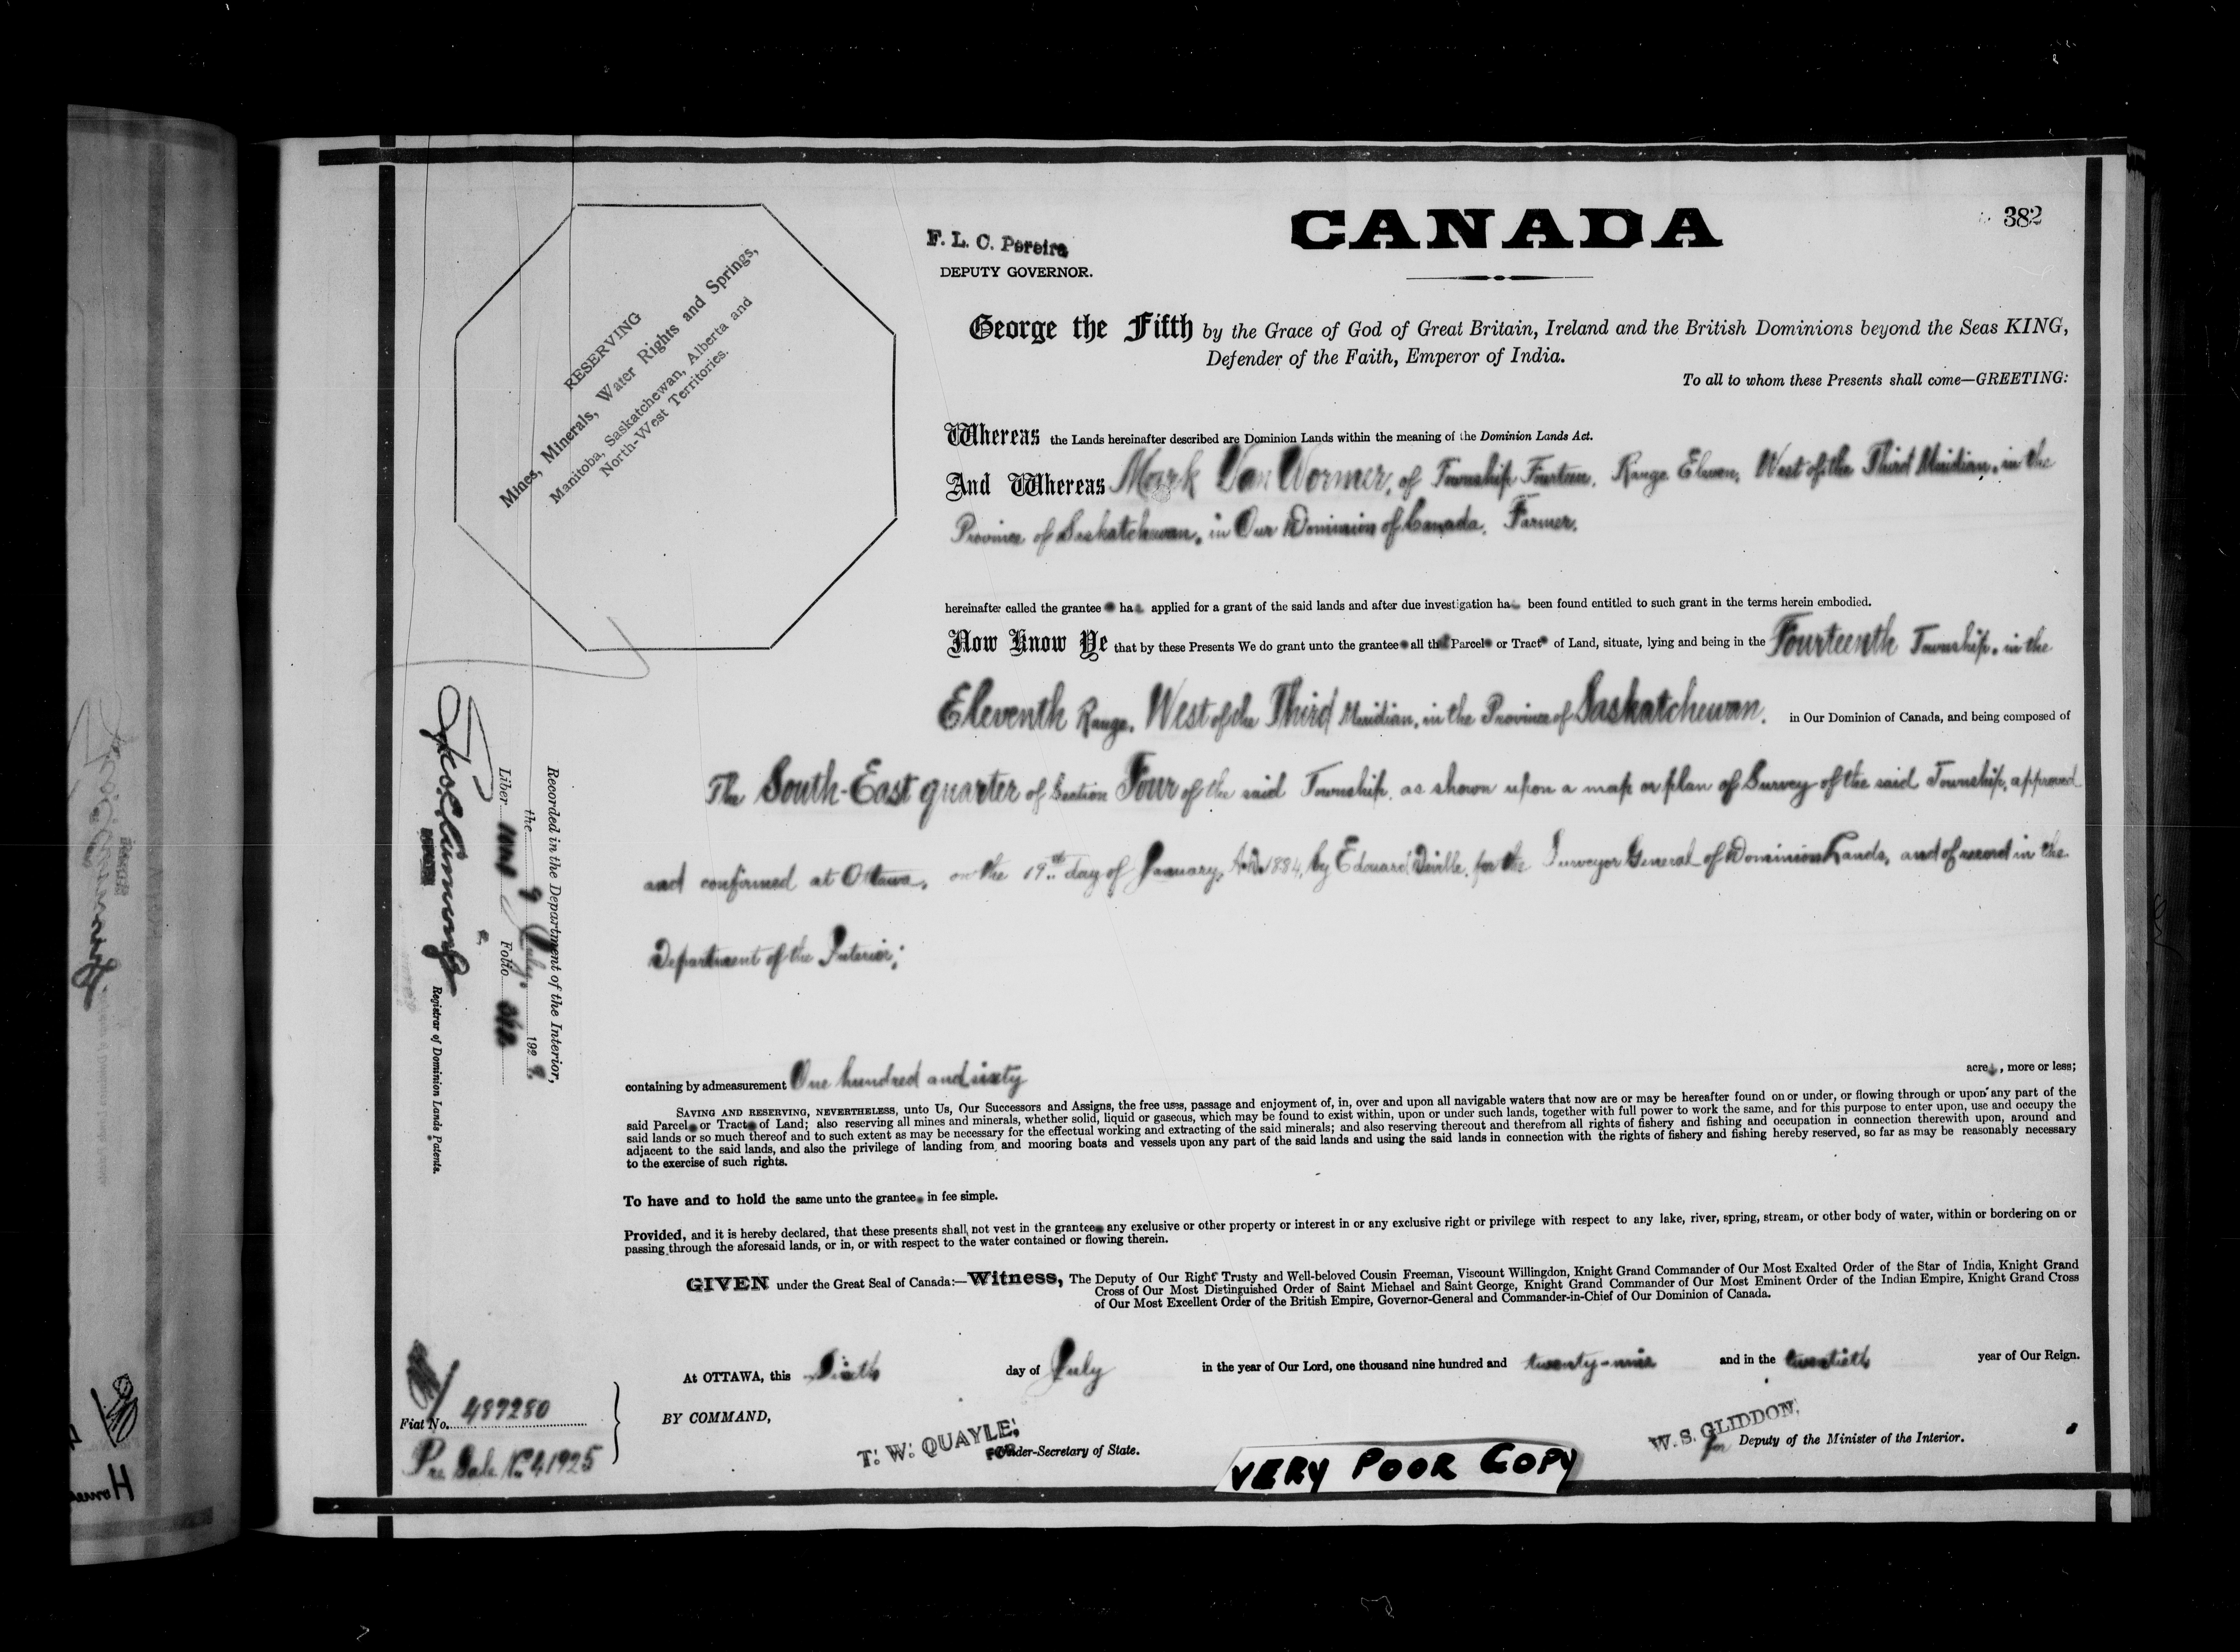 CANADA
382
F. L. C. Pereira
DEPUTY GOVERNOR.
RESERVING
Mines, Minerals, Water Rights and Springs,
Manitoba, Saskatchewan, Alberta and
North-West Territories.
George the Fifth by the Grace of God of Great Britain, Ireland and the British Dominions beyond the Seas KING,
Defender of the Faith, Emperor of India.
To all to whom these Presents shall come—GREETING:
Whereas the Lands hereinafter described are Dominion Lands within the meaning of the Dominion Lands Act.
And Whereas Mark Van Wormer, of Township Fourteen, Range Eleven, West of the Third Meridian, in the
Province of Saskatchewan, in Our Dominion of Canada, Farmer,
hereinafter called the grantee has applied for a grant of the said lands and after due investigation has been found entitled to such grant in the terms herein embodied.
Now Know Ye that by these Presents We do grant unto the grantee all that Parcel or Tract of Land, situate, lying and being in the Fourteenth Township, in the
Eleventh Range, West of the Third Meridian, in the Province of Saskatchewan, in Our Dominion of Canada, and being composed of
The South-East quarter of Section Four of the said Township, as shown upon a map or plan of Survey of the said Township, approved
and confirmed at Ottawa, on the 19th day of January, A.D. 1884, by Edouard Deville, for the Surveyor General of Dominion Lands, and of record in the
Department of the Interior;
containing by admeasurement One hundred and sixty acres, more or less;
SAVING AND RESERVING, NEVERTHELESS, unto Us, Our Successors and Assigns, the free uses, passage and enjoyment of, in, over and upon all navigable waters that now are or may be hereafter found on or under, or flowing through or upon any part of the
said Parcel or Tract of Land; also reserving all mines and minerals, whether solid, liquid or gaseous, which may be found to exist within, upon or under such lands, together with full power to work the same, and for this purpose to enter upon, use and occupy the
said lands or so much thereof and to such extent as may be necessary for the effectual working and extracting of the said minerals; and also reserving thereout and therefrom all rights of fishery and fishing and occupation in connection therewith upon, around and
adjacent to the said lands, and also the privilege of landing from and mooring boats and vessels upon any part of the said lands and using the said lands in connection with the rights of fishery and fishing hereby reserved, so far as may be reasonably necessary
to the exercise of such rights.
To have and to hold the same unto the grantee in fee simple.
Provided, and it is hereby declared, that these presents shall not vest in the grantee any exclusive or other property or interest in or any exclusive right or privilege with respect to any lake, river, spring, stream, or other body of water, within or bordering on or
passing through the aforesaid lands, or in, or with respect to the water contained or flowing therein.
GIVEN under the Great Seal of Canada:—Witness, The Deputy of Our Right Trusty and Well-beloved Cousin Freeman, Viscount Willingdon, Knight Grand Commander of Our Most Exalted Order of the Star of India, Knight Grand
Cross of Our Most Distinguished Order of Saint Michael and Saint George, Knight Grand Commander of Our Most Eminent Order of the Indian Empire, Knight Grand Cross
of Our Most Excellent Order of the British Empire, Governor-General and Commander-in-Chief of Our Dominion of Canada.
At OTTAWA, this Sixth day of July in the year of Our Lord, one thousand nine hundred and twenty-nine and in the twentieth year of Our Reign.
BY COMMAND,
T. W. QUAYLE,
FOR Under-Secretary of State.
W. S. GLIDDON,
for Deputy of the Minister of the Interior.
VERY POOR COPY
Fiat No. 487280
Pre Sale No. 41925
Recorded in the Department of the Interior,
the 9 July, 1929
Liber Folio 382
Registrar of Dominion Lands Patents.